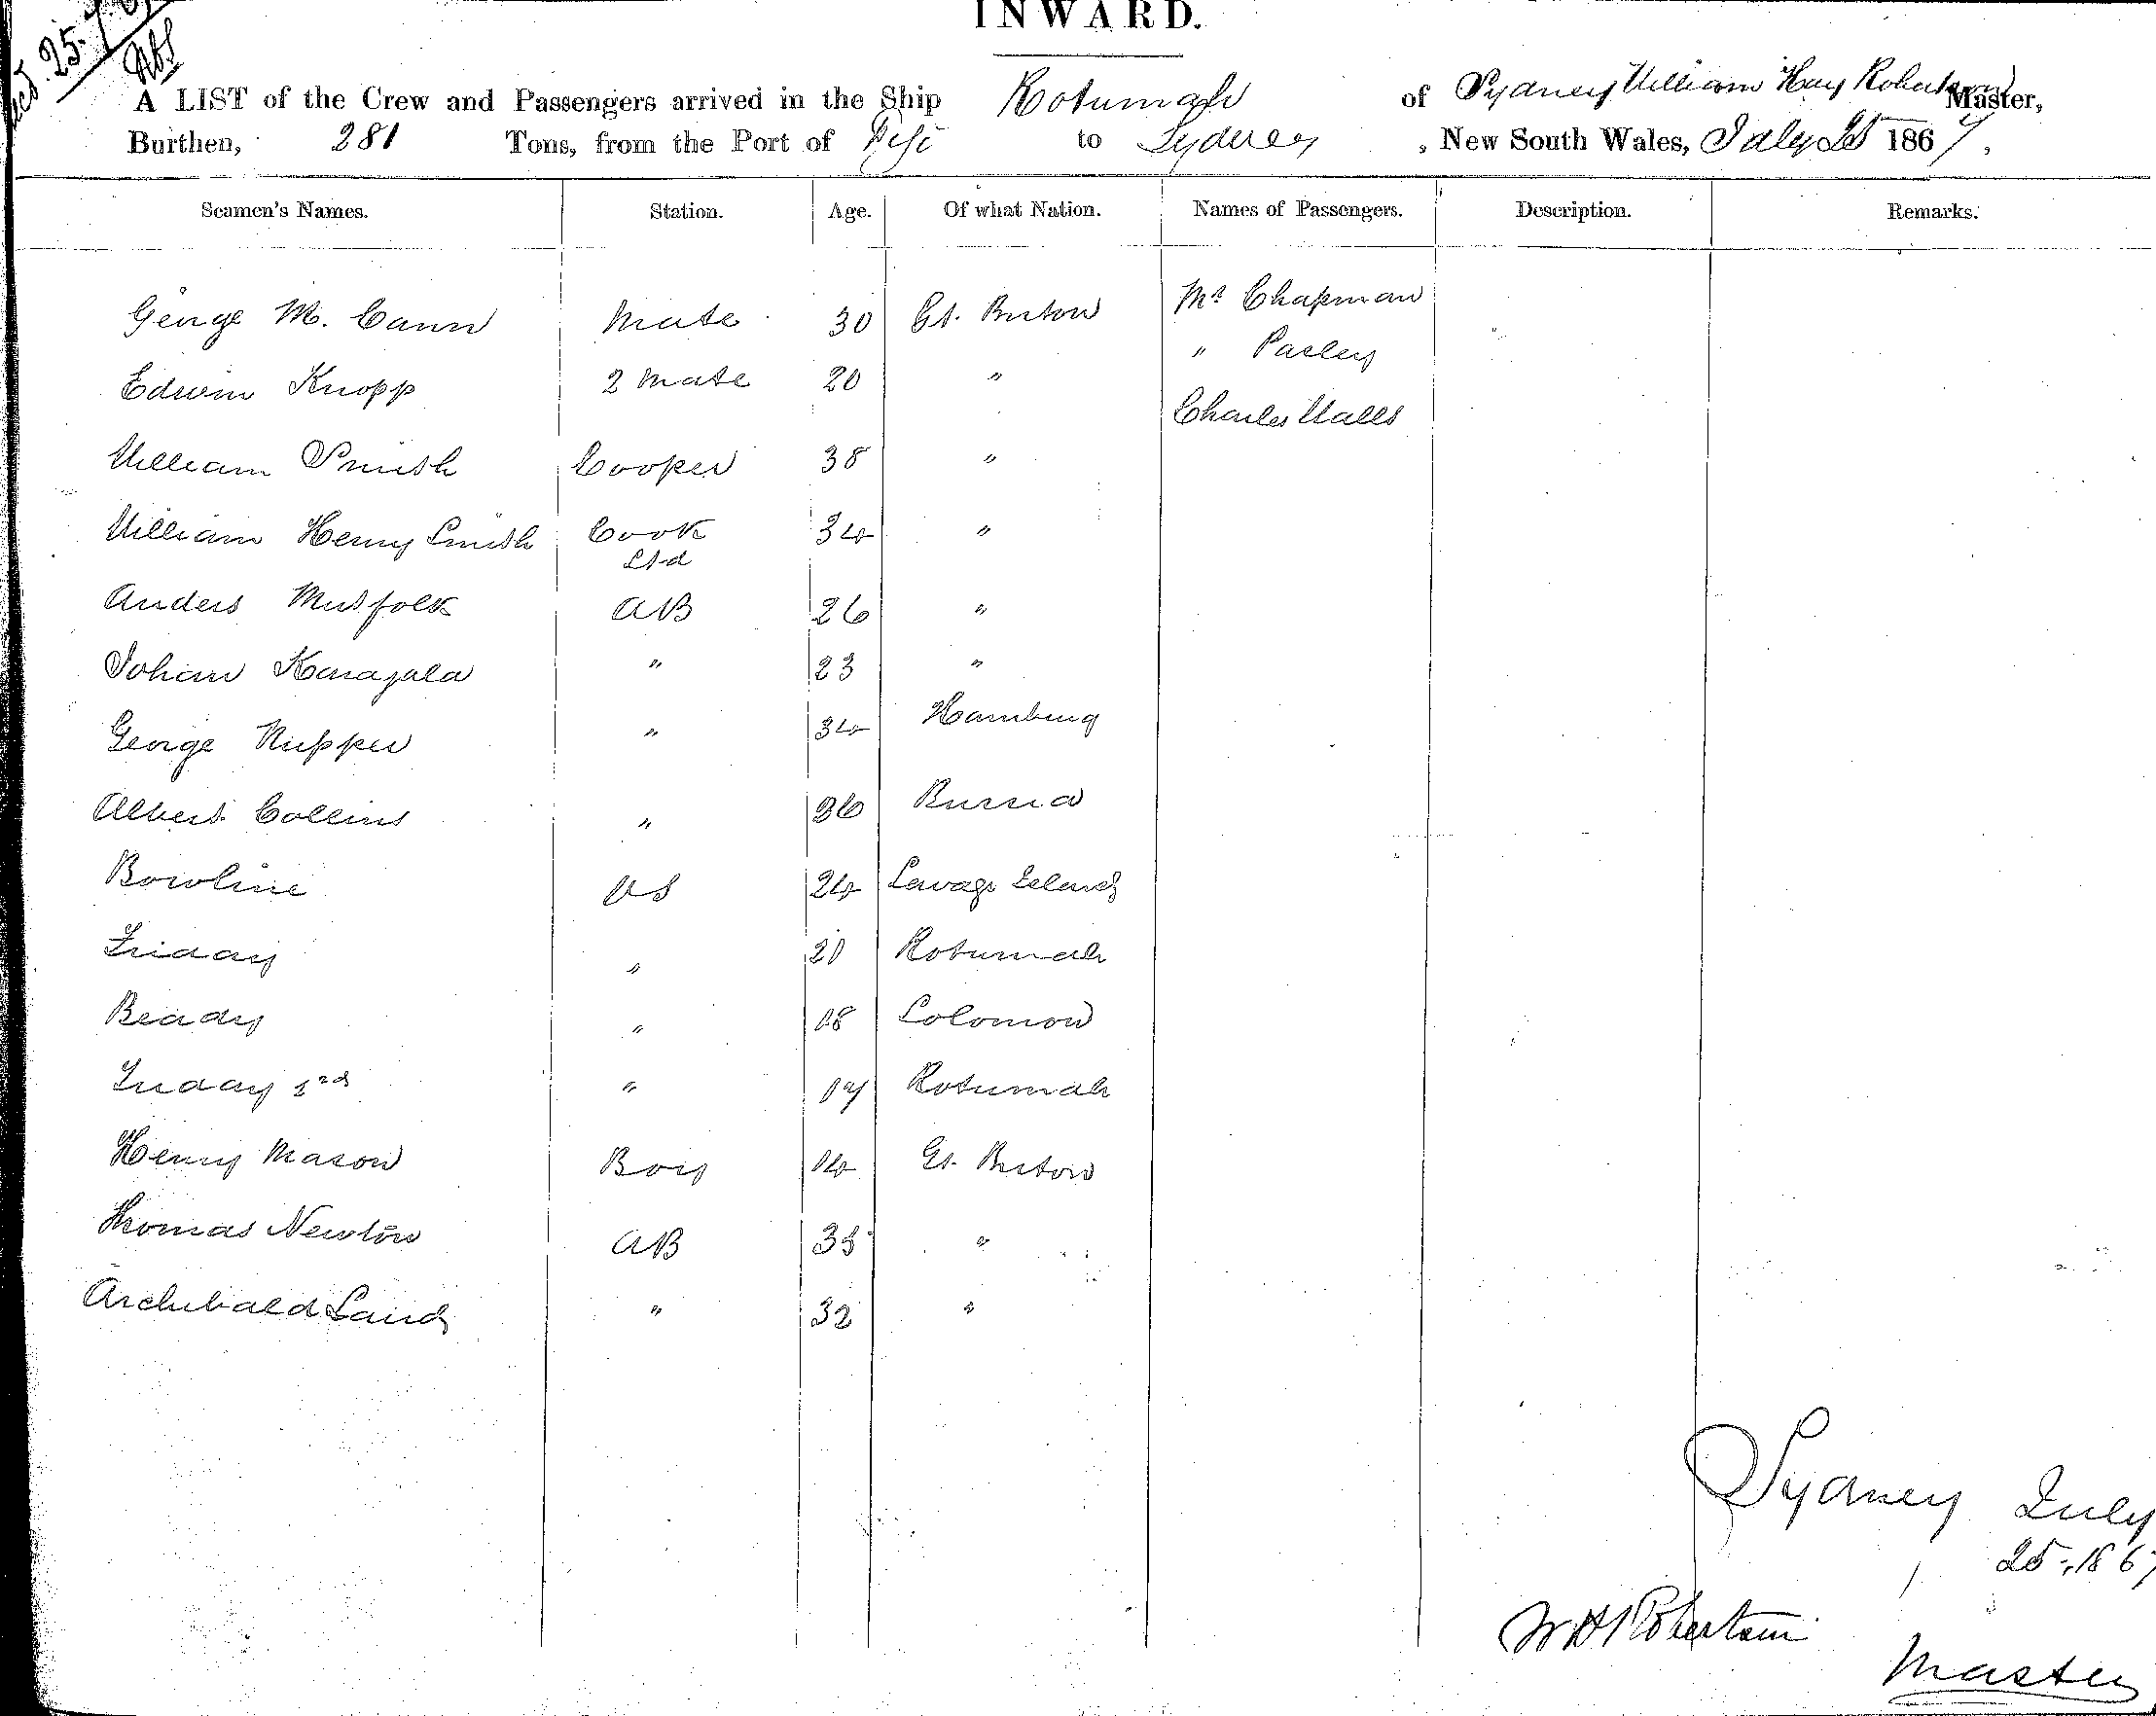 INWARD.
A LIST of the Crew and Passengers arrived in the Ship Rotumah of Sydney William Hay Robertson Master,
Burthen, 281 Tons, from the Port of Fiji to Sydney, New South Wales, July 25 1867.
Seamen's Names. Station. Age. Of what Nation. Names of Passengers. Description. Remarks.
George M. Cann Mate 30 Gt. Briton Mr Chapman
" Pasley
Edwin Knopp 2 Mate 20 "
Charles Walls
William Smith Cooper 38 "
William Henry Smith Cook Std 34 "
Anders AB 26 "
Johan " 23 "
George " 34 Hamburg
Albert Collins " 36 Russia
Bowline OS 24 Savage Island
Friday " 20 Rotumah
Beady " 18 Solomon
Friday 2nd " 17 Rotumah
Henry Mason Boy 14 Gt. Briton
Thomas Newton AB 35 "
Archibald Laird " 32 "
Sydney July
25, 1867
W H Robertson
Master